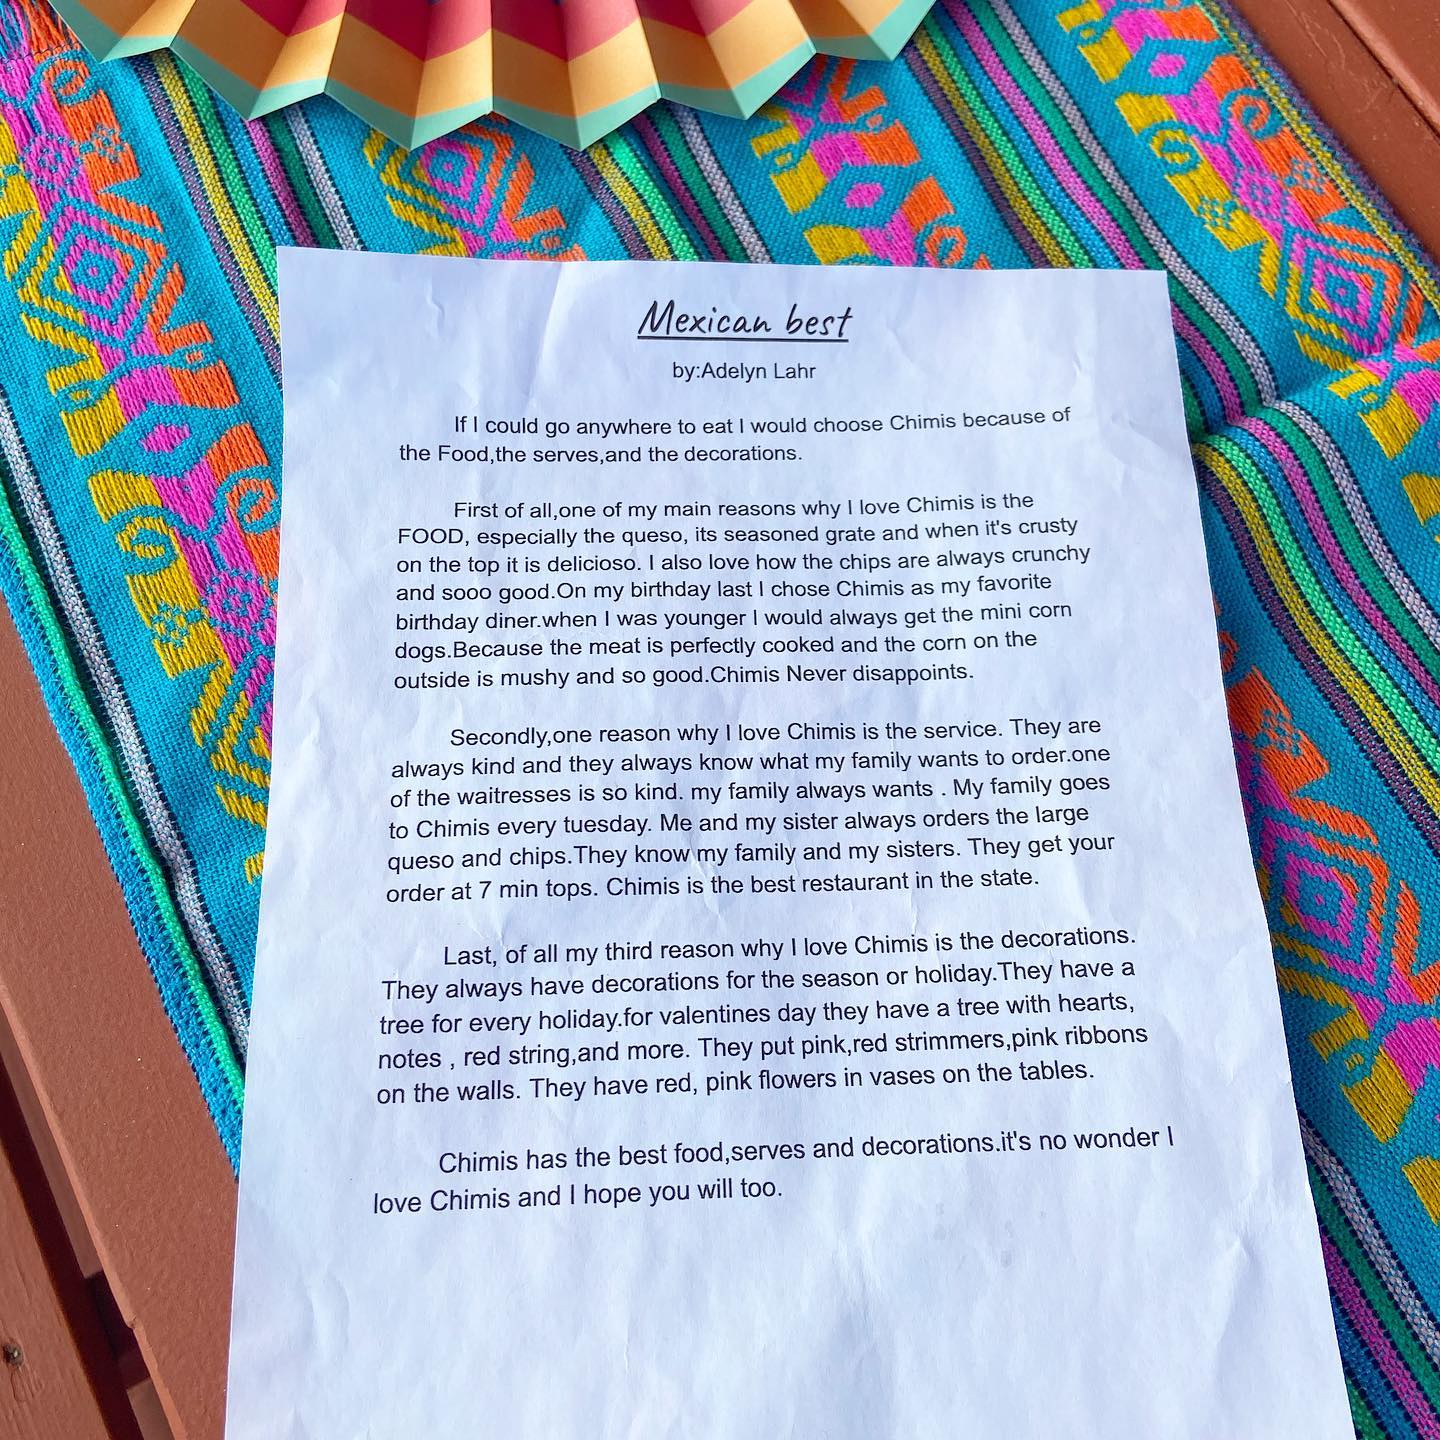 Mexican best
by:Adelyn Lahr
If I could go anywhere to eat I would choose Chimis because of
the Food,the serves,and the decorations.
First of all,one of my main reasons why I love Chimis is the
FOOD, especially the queso, its seasoned grate and when it's crusty
on the top it is delicioso. I also love how the chips are always crunchy
and sooo good.On my birthday last I chose Chimis as my favorite
birthday diner.when I was younger I would always get the mini corn
dogs.Because the meat is perfectly cooked and the corn on the
outside is mushy and so good.Chimis Never disappoints.
Secondly,one reason why I love Chimis is the service. They are
always kind and they always know what my family wants to order.one
of the waitresses is so kind. my family always wants . My family goes
to Chimis every tuesday. Me and my sister always orders the large
queso and chips.They know my family and my sisters. They get your
order at 7 min tops. Chimis is the best restaurant in the state.
Last, of all my third reason why I love Chimis is the decorations.
They always have decorations for the season or holiday.They have a
tree for every holiday.for valentines day they have a tree with hearts,
notes , red string,and more. They put pink,red strimmers,pink ribbons
on the walls. They have red, pink flowers in vases on the tables.
Chimis has the best food,serves and decorations.it's no wonder I
love Chimis and I hope you will too.